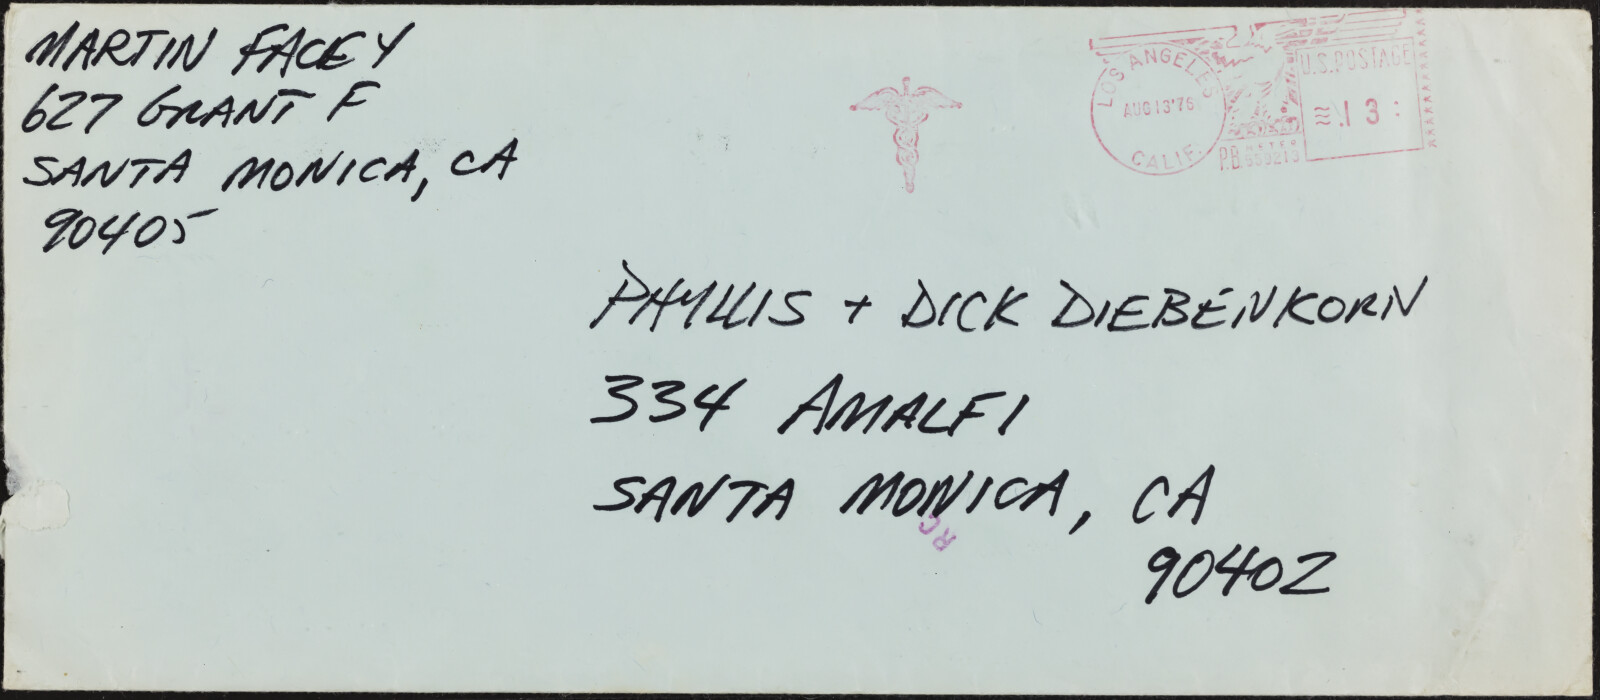 MARTIN FACEY
627 GRANT F
SANTA MONICA, CA
90405
LOS ANGELES
AUG 13 '76
CALIF.
U.S. POSTAGE
.13
P.B.
METER
PHYLLIS + DICK DIEBENKORN
334 AMALFI
SANTA MONICA, CA
90402